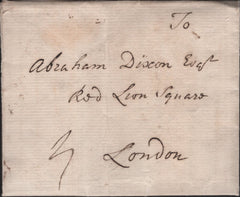 To
Abraham Dixon Esqr
Red Lion Square
London